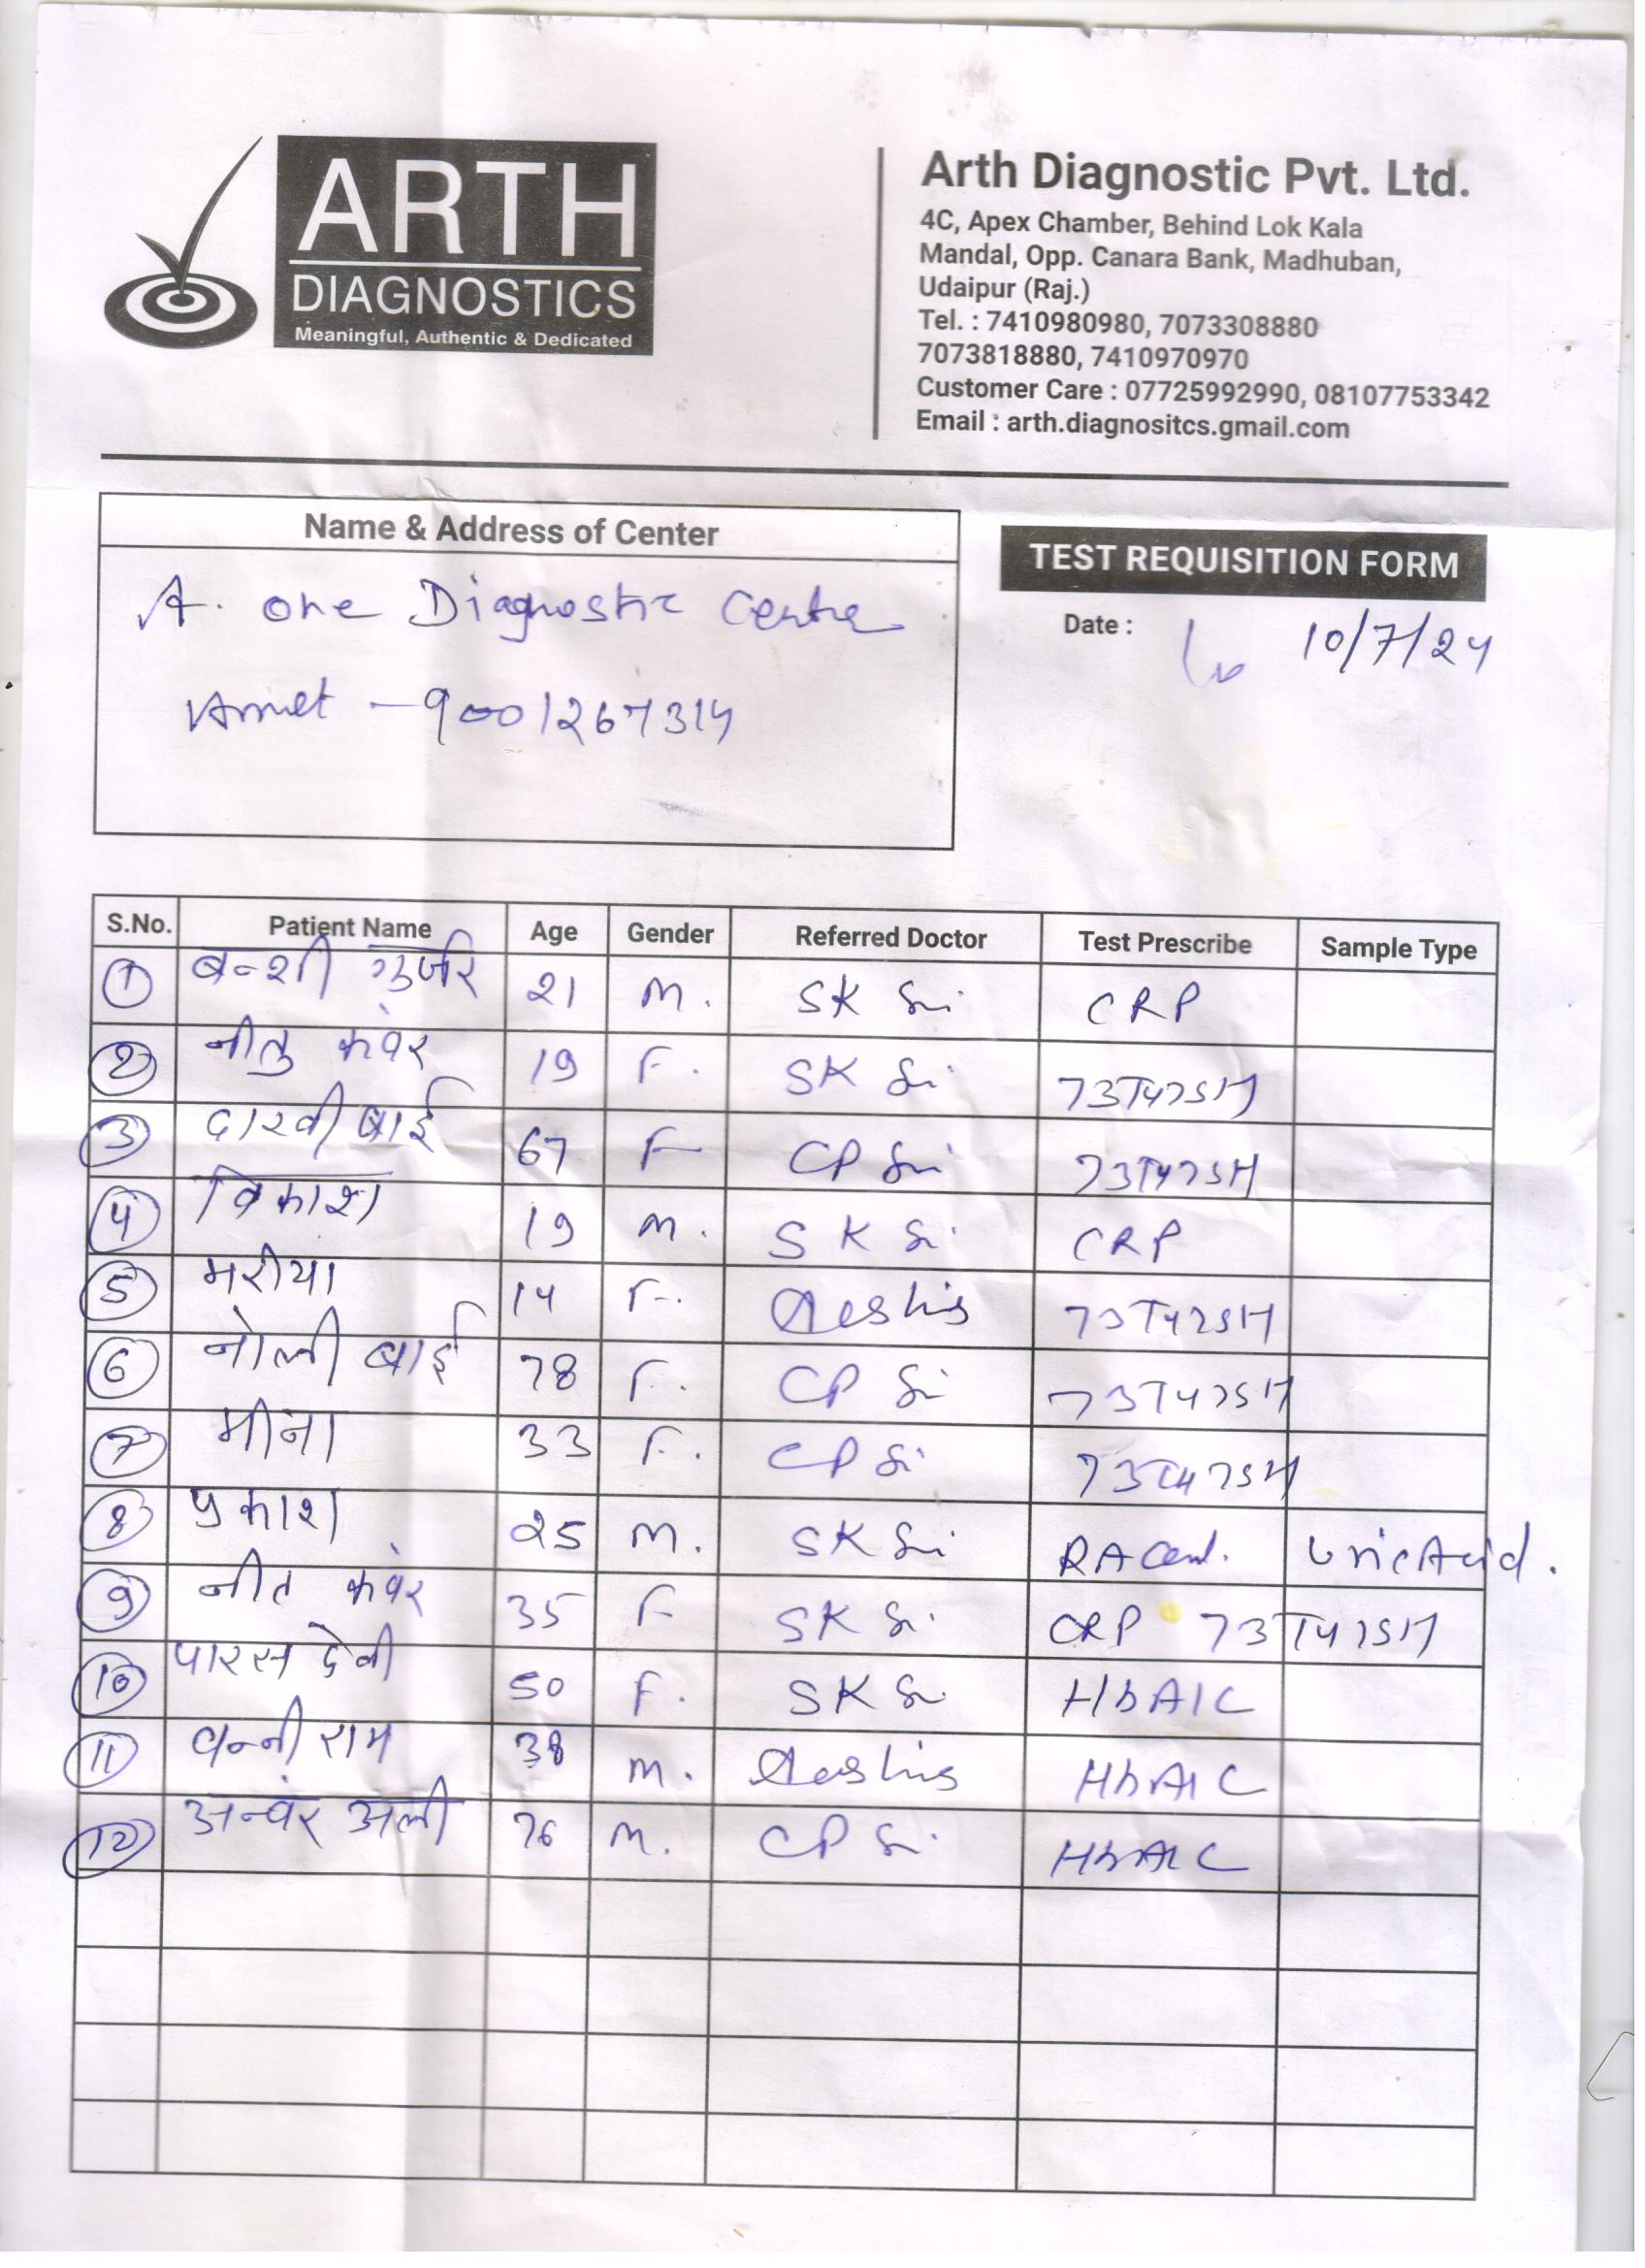 ARTH
DIAGNOSTICS
Meaningful, Authentic & Dedicated
Arth Diagnostic Pvt. Ltd.
4C, Apex Chamber, Behind Lok Kala
Mandal, Opp. Canara Bank, Madhuban,
Udaipur (Raj.)
Tel. : 7410980980, 7073308880
7073818880, 7410970970
Customer Care : 07725992990, 08107753342
Email : arth.diagnositcs.gmail.com
Name & Address of Center
A. one Diagnostic Centre
Amet - 9001267314
TEST REQUISITION FORM
Date : 10/7/24
S.No. Patient Name Age Gender Referred Doctor Test Prescribe Sample Type
1 बन्शी गुर्जर 21 M. SK Sir CRP
2 नीतु कंवर 19 F. SK Sir T3T4TSH
3 बाई 67 F CP Sir T3T4TSH
4 विकाश 19 M. SK Sir CRP
5 मरीया 14 F. Aashis T3T4TSH
6 नोली बाई 78 F. CP Sir T3T4TSH
7 मीना 33 F. CP Sir T3T4TSH
8 प्रकाश 25 M. SK Sir RA Uric Acid.
9 नीत कंवर 35 F SK Sir CRP T3T4TSH
10 पारस देवी 50 F. SK Sir HbA1C
11 वन्नी राम 38 M. Aashis HbA1C
12 अन्वर अली 76 M. CP Sir HbA1C